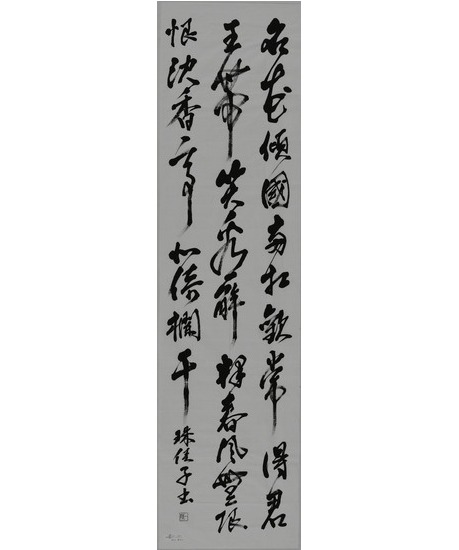 名花傾國兩相歡常得君
王帶笑看解釋春風無限
恨沈香亭北倚欄干
子書